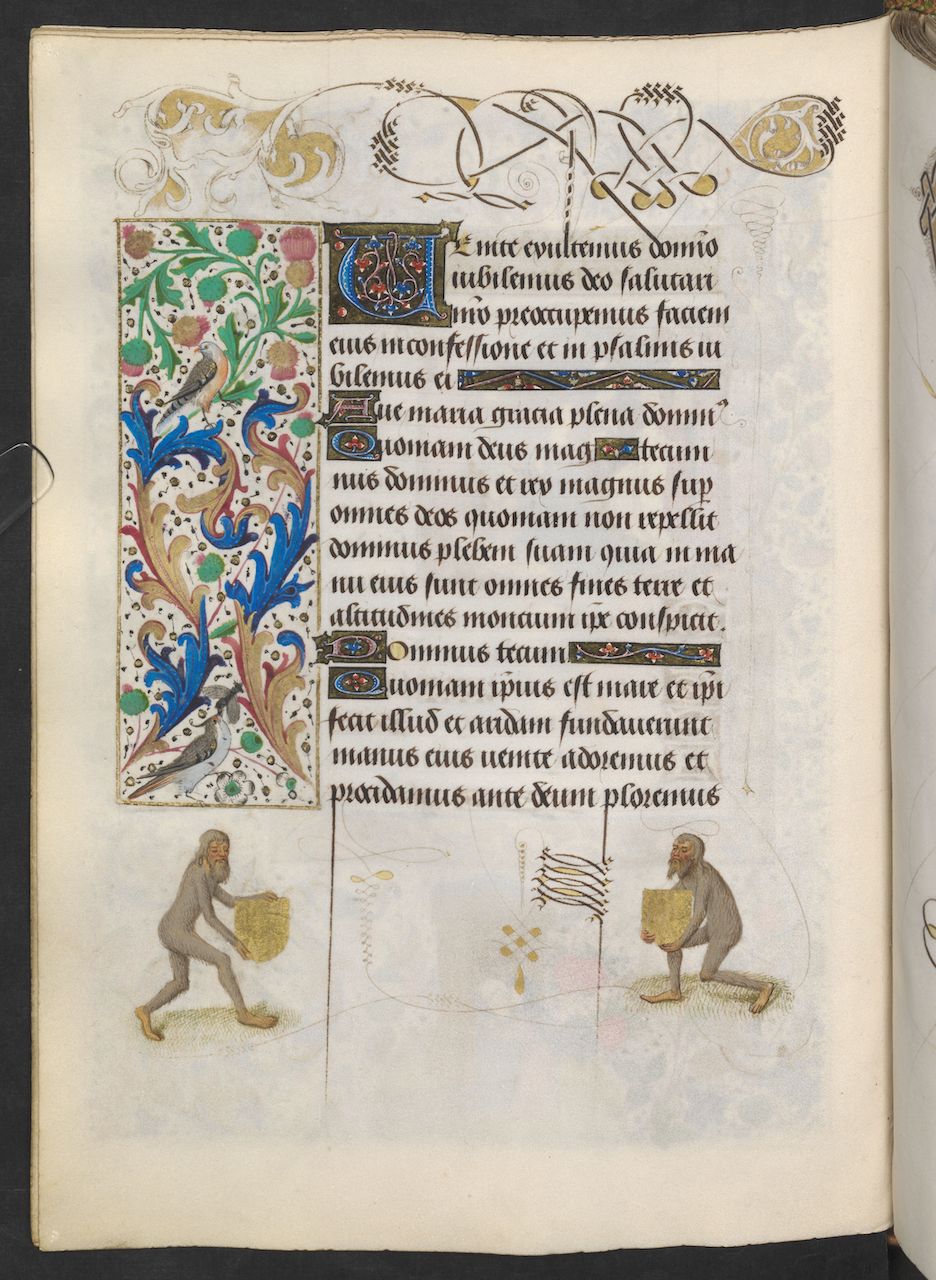 Uenite exultemus domino
iubilemus deo salutari
nr̄o preoccupemus faciem
eius in confessione et in psalmis iu
bilemus ei
Aue maria gracia plena domin⁹
Quoniam deus mag tecum
nus dominus et rex magnus sup̱
omnes deos quoniam non repellit
dominus plebem suam quia in ma
nu eius sunt omnes fines terre et
altitudines moncium ip̄e conspicit.
Dominus tecum
Quoniam ip̄ius est mare et ip̄e
fecit illud et aridam fundauerunt
manus eius uenite adoremus et
procidamus ante deum ploremus